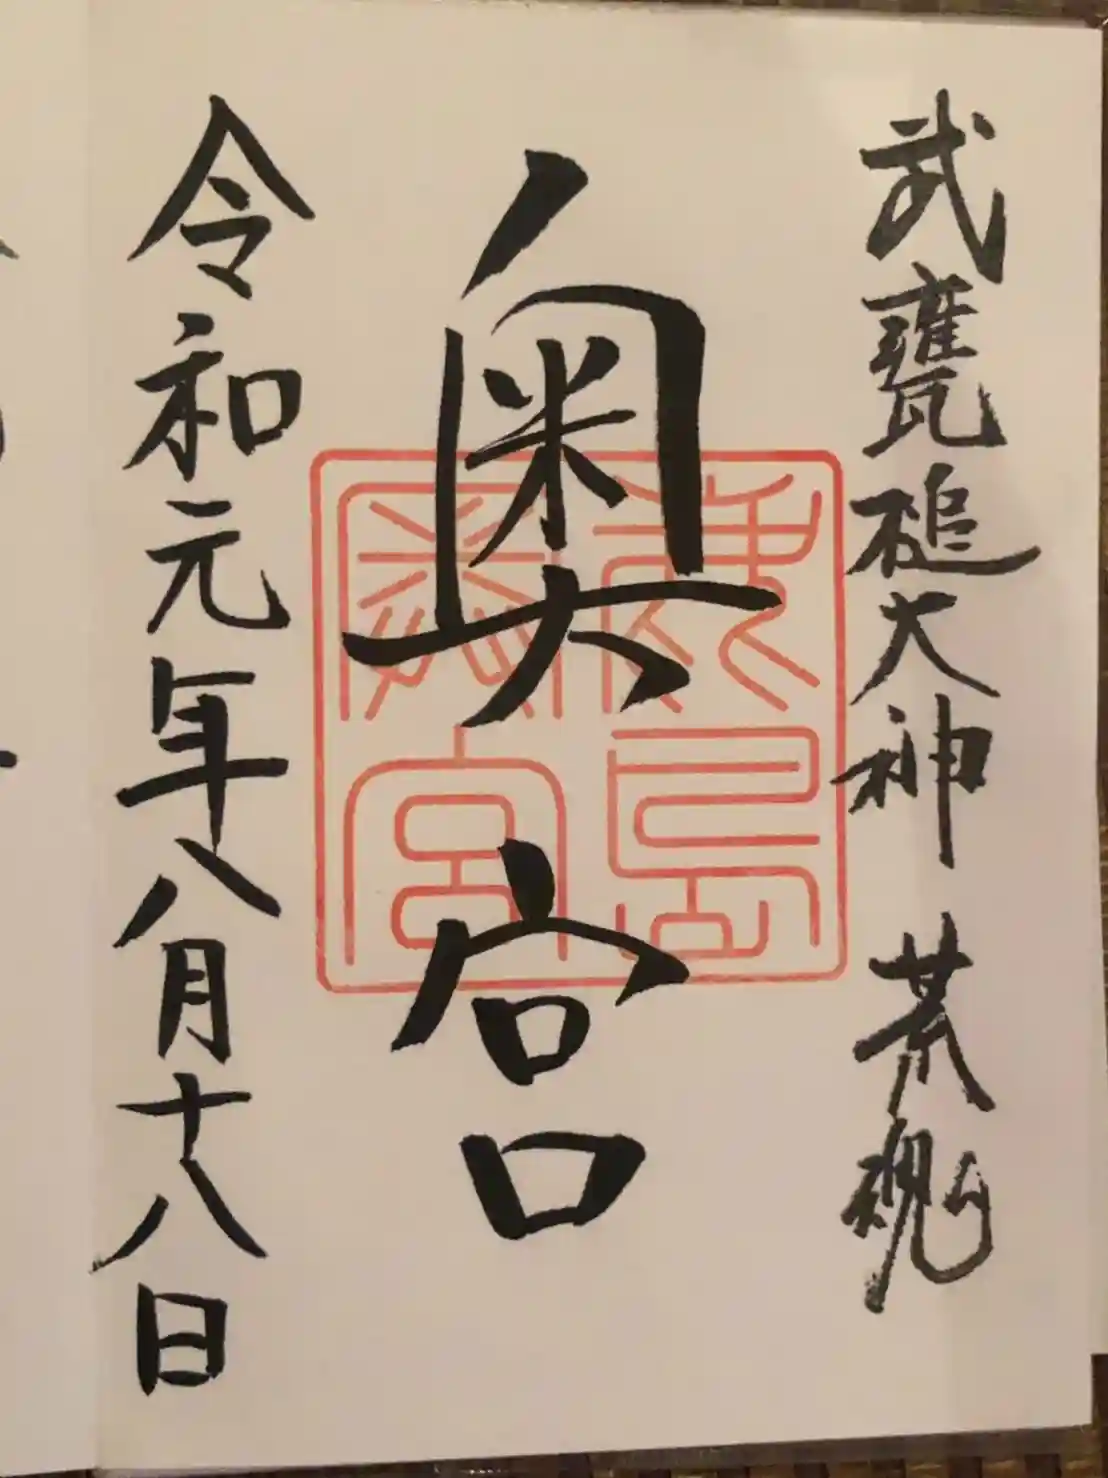 武甕槌大神 荒魂
奥宮
鹿島奥宮
令和元年八月十八日